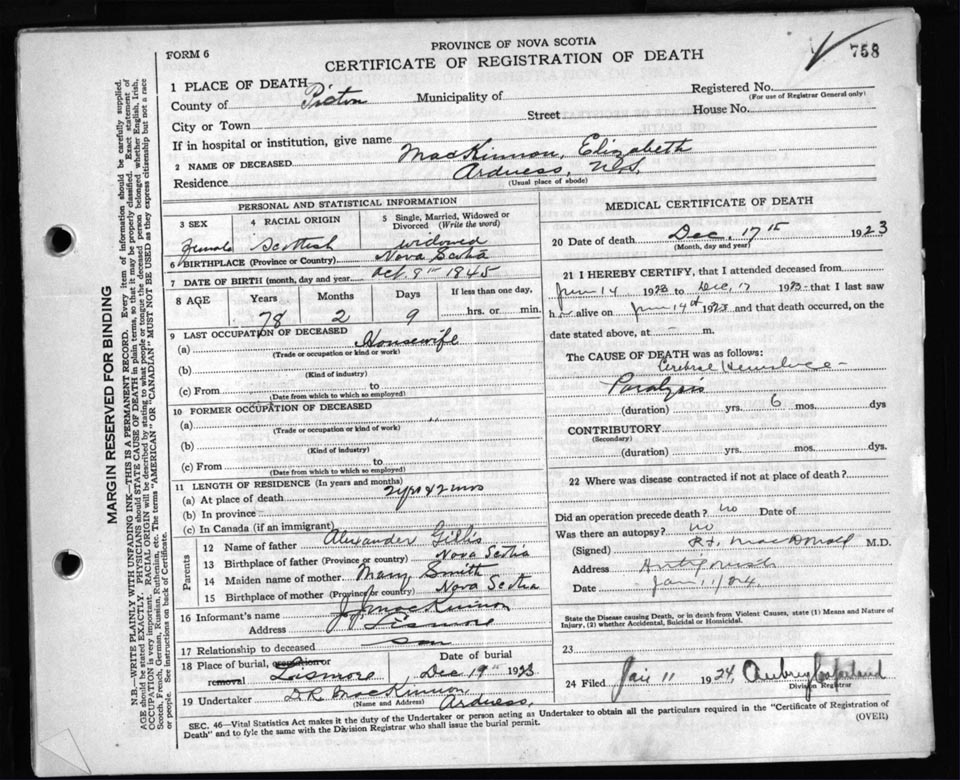 758
PROVINCE OF NOVA SCOTIA
FORM 6
CERTIFICATE OF REGISTRATION OF DEATH
1 PLACE OF DEATH
Registered No.
(For use of Registrar General only)
County of Pictou Municipality of
City or Town Street House No.
If in hospital or institution, give name
2 NAME OF DECEASED MacKinnon, Elizabeth
Residence Ardness, N.S.
(Usual place of abode)
PERSONAL AND STATISTICAL INFORMATION
3 SEX 4 RACIAL ORIGIN 5 Single, Married, Widowed or Divorced (Write the word)
Female Scottish Widowed
6 BIRTHPLACE (Province or Country) Nova Scotia
7 DATE OF BIRTH (month, day and year) Oct. 8th 1845
8 AGE Years Months Days If less than one day,
78 2 9 hrs. or min.
9 LAST OCCUPATION OF DECEASED
(a) Housewife
(Trade or occupation or kind of work)
(b)
(Kind of industry)
(c) From to
(Date from which to which so employed)
10 FORMER OCCUPATION OF DECEASED
(a) "
(Trade or occupation or kind of work)
(b)
(Kind of industry)
(c) From to
(Date from which to which so employed)
11 LENGTH OF RESIDENCE (In years and months)
(a) At place of death
(b) In province
(c) In Canada (if an immigrant)
Parents
12 Name of father Alexander Gillis
13 Birthplace of father (Province or country) Nova Scotia
14 Maiden name of mother Mary Smith
15 Birthplace of mother (Province or country) Nova Scotia
16 Informant's name J. J. MacKinnon
Address Lismore
17 Relationship to deceased son
18 Place of burial, cremation or removal Lismore Date of burial Dec 19th 1923
19 Undertaker D.R. MacKinnon
(Name and Address) Ardness,
MEDICAL CERTIFICATE OF DEATH
20 Date of death Dec. 17th 1923
(Month, day and year)
21 I HEREBY CERTIFY, that I attended deceased from
June 14 1923 to Dec, 17 1923 that I last saw
her alive on June 14th 1923 and that death occurred, on the
date stated above, at - m.
The CAUSE OF DEATH was as follows:
Cerebral
Paralysis
(duration) yrs. 6 mos. dys
CONTRIBUTORY
(Secondary)
(duration) yrs. mos. dys.
22 Where was disease contracted if not at place of death?
Did an operation precede death? no Date of
Was there an autopsy? no
(Signed) R.F. MacDonald M.D.
Address Antigonish
Date Jan 11/24.
State the Disease causing Death, or in death from Violent Causes, state (1) Means and Nature of
Injury, (2) whether Accidental, Suicidal or Homicidal.
23
24 Filed Jan 11 1924 Aubrey
Division Registrar
SEC. 46—Vital Statistics Act makes it the duty of the Undertaker or person acting as Undertaker to obtain all the particulars required in the "Certificate of Registration of
Death" and to fyle the same with the Division Registrar who shall issue the burial permit.
(OVER)
MARGIN RESERVED FOR BINDING
N.B.—WRITE PLAINLY WITH UNFADING INK—THIS IS A PERMANENT RECORD. Every item of information should be carefully supplied.
AGE should be stated EXACTLY. PHYSICIANS should STATE CAUSE OF DEATH in plain terms, so that it may be properly classified. Exact statement of
OCCUPATION is very important. RACIAL ORIGIN will be described by stating to what people or tongue the deceased person belonged whether English, Irish,
Scotch, French, German, Russian, Ruthenian, etc. The terms "AMERICAN" OR "CANADIAN" MUST NOT BE USED as they express citizenship but not a race
or people. See instructions on back of Certificate.